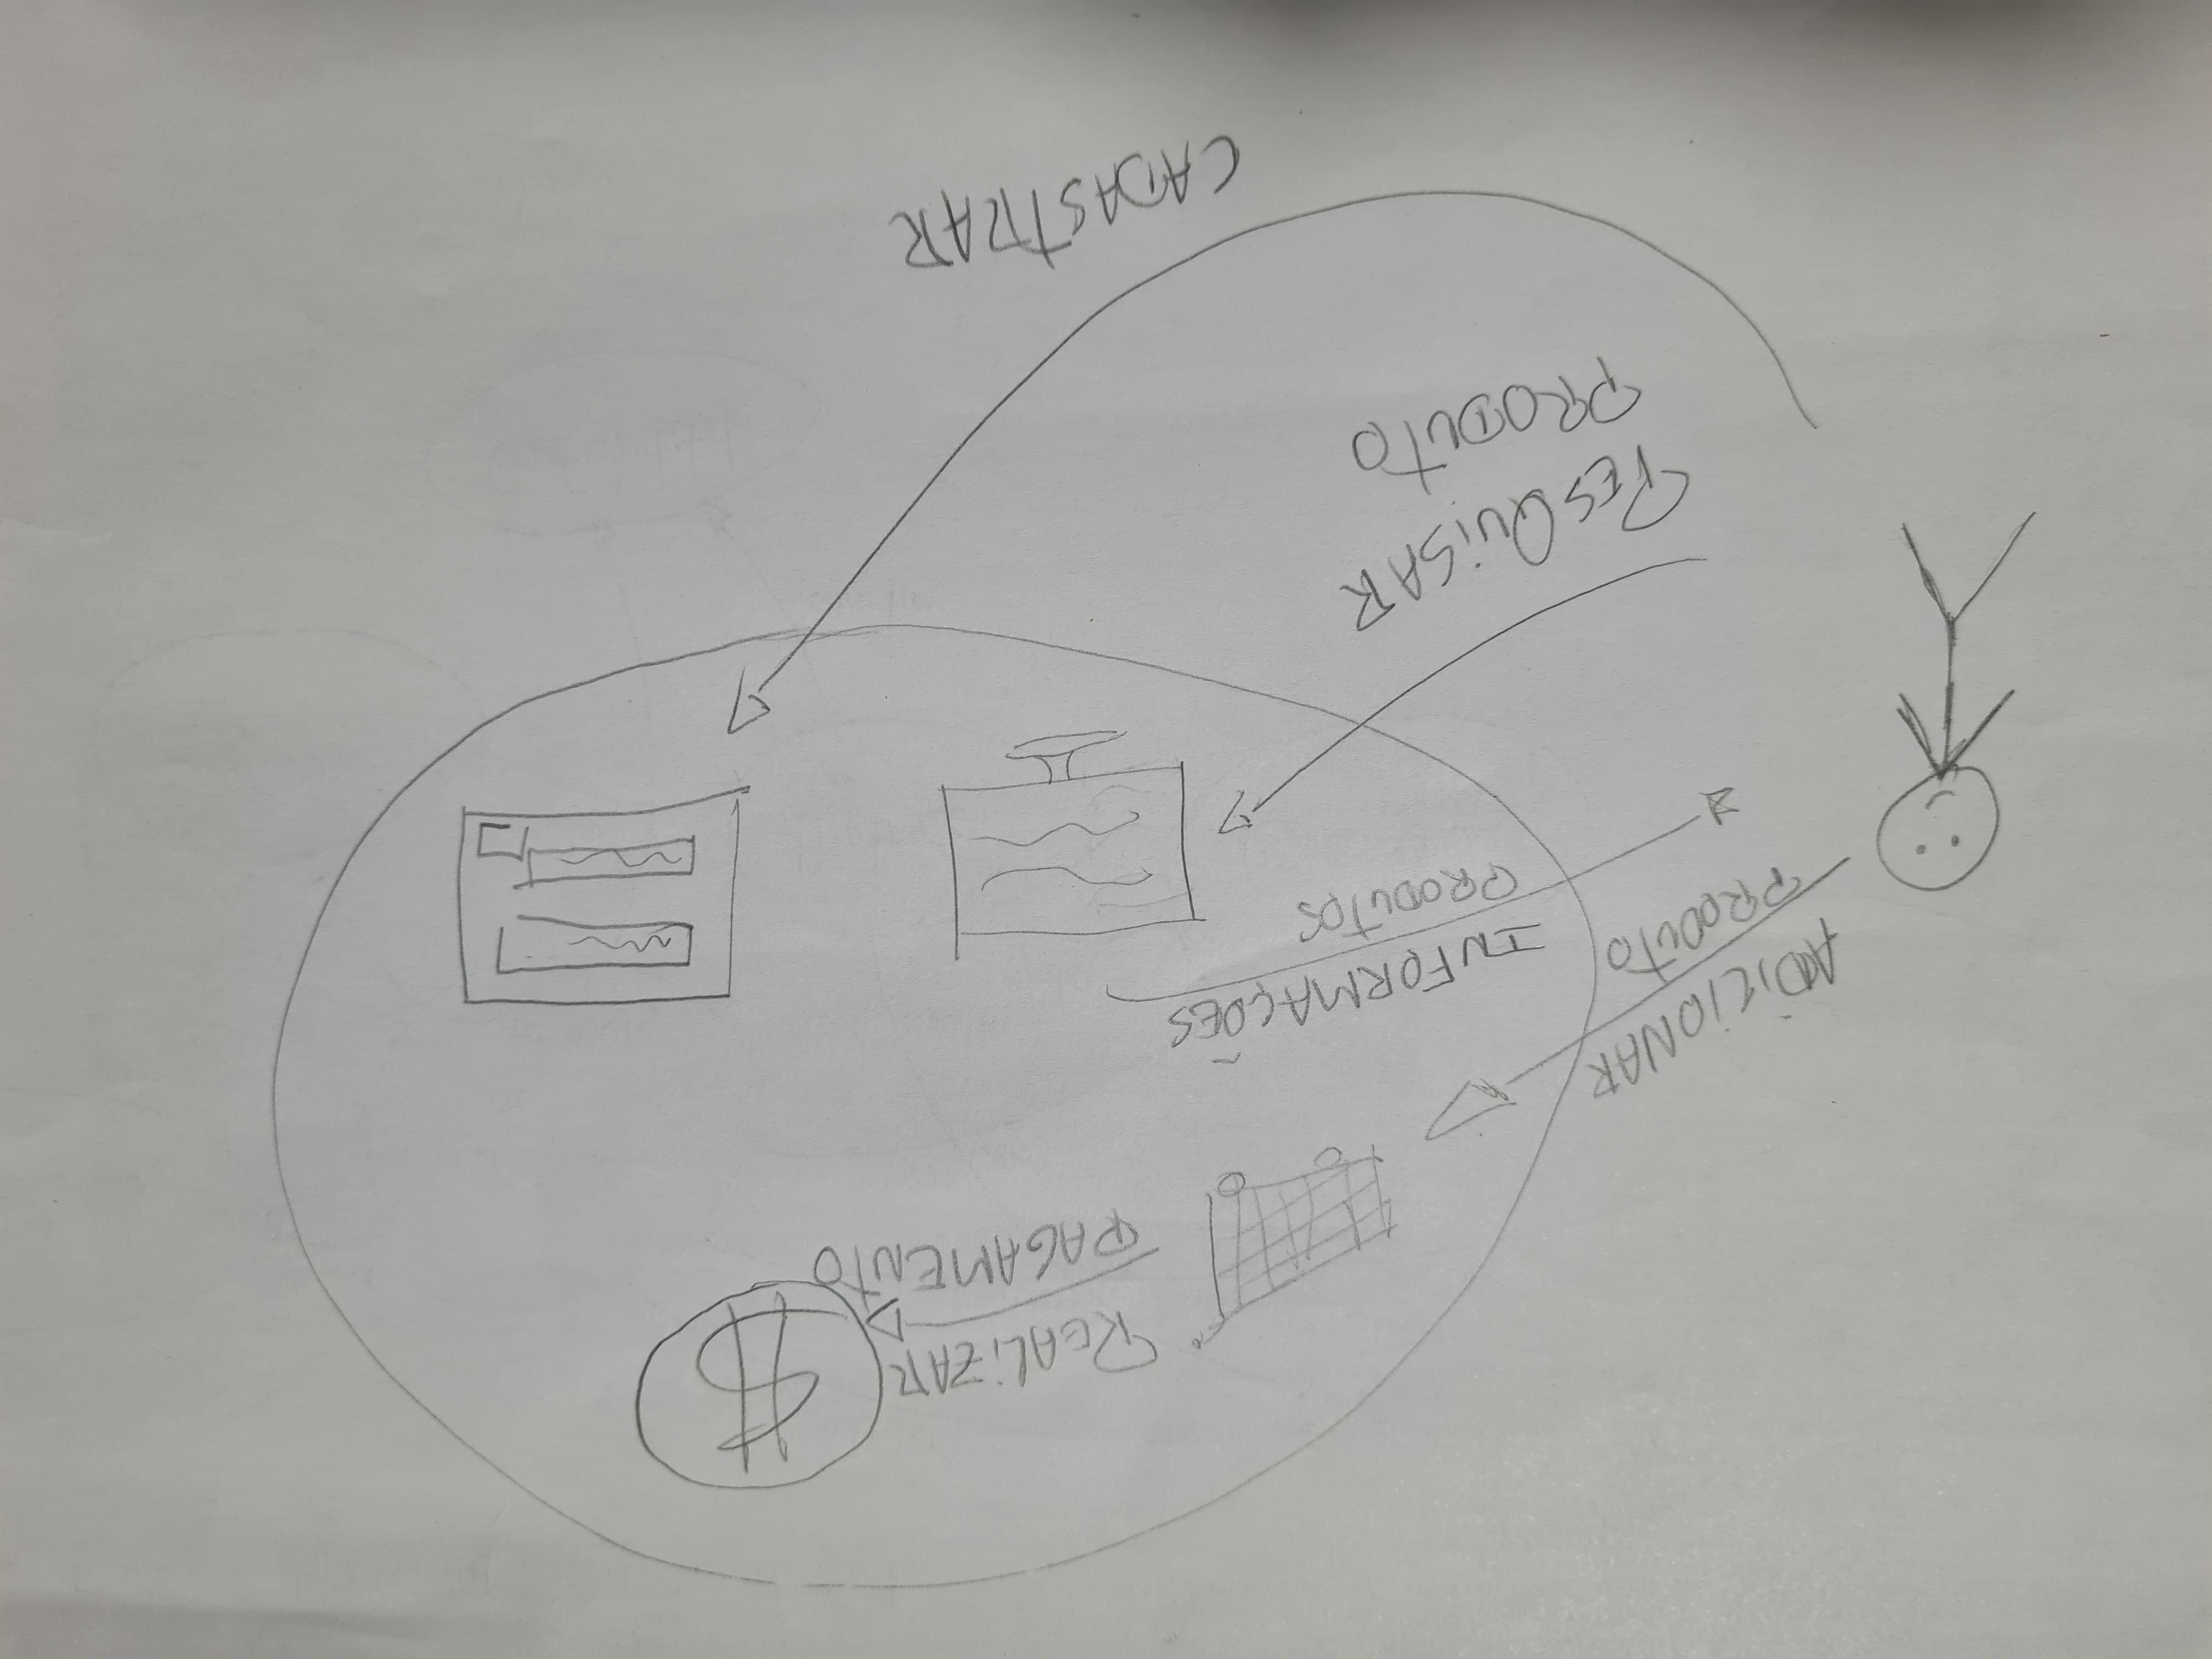 REALIZAR
PAGAMENTO
$
ADICIONAR
PRODUTO
INFORMAÇÕES
PRODUTOS
PESQUISAR
PRODUTO
CADASTRAR